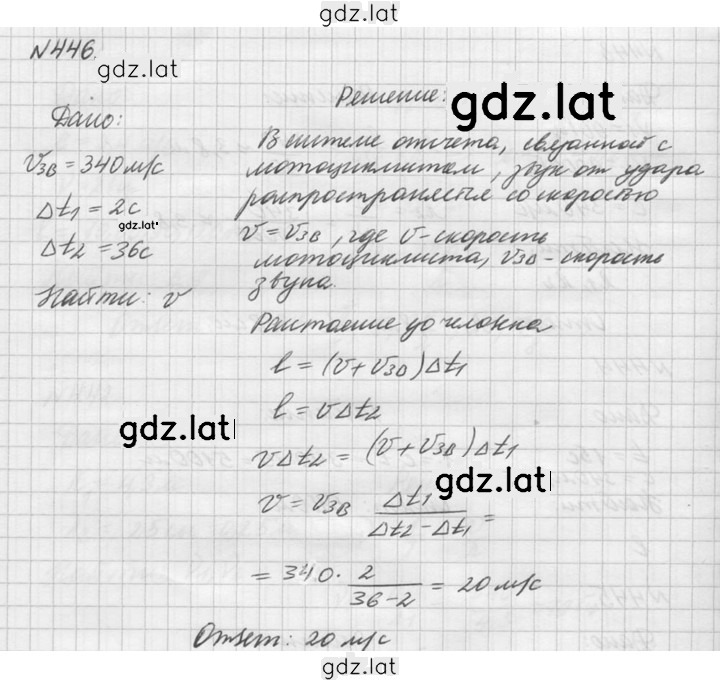 gdz.lat
N446.
gdz.lat
Решение:
gdz.lat
Дано:
vзв = 340 м/с
Δt1 = 2с
gdz.lat
Δt2 = 36с
Найти: v
В системе отсчета, связанной с
мотоциклистом, звук от удара
распространяется со скоростью
v = vзв, где v - скорость
мотоциклиста, vзв - скорость
звука.
Расстояние до человека
l = (v + vзв)Δt1
l = vΔt2
gdz.lat
vΔt2 = (v + vзв)Δt1
gdz.lat
v = vзв Δt1/(Δt2 - Δt1) =
= 340 · 2/(36-2) = 20 м/с
Ответ: 20 м/с
gdz.lat